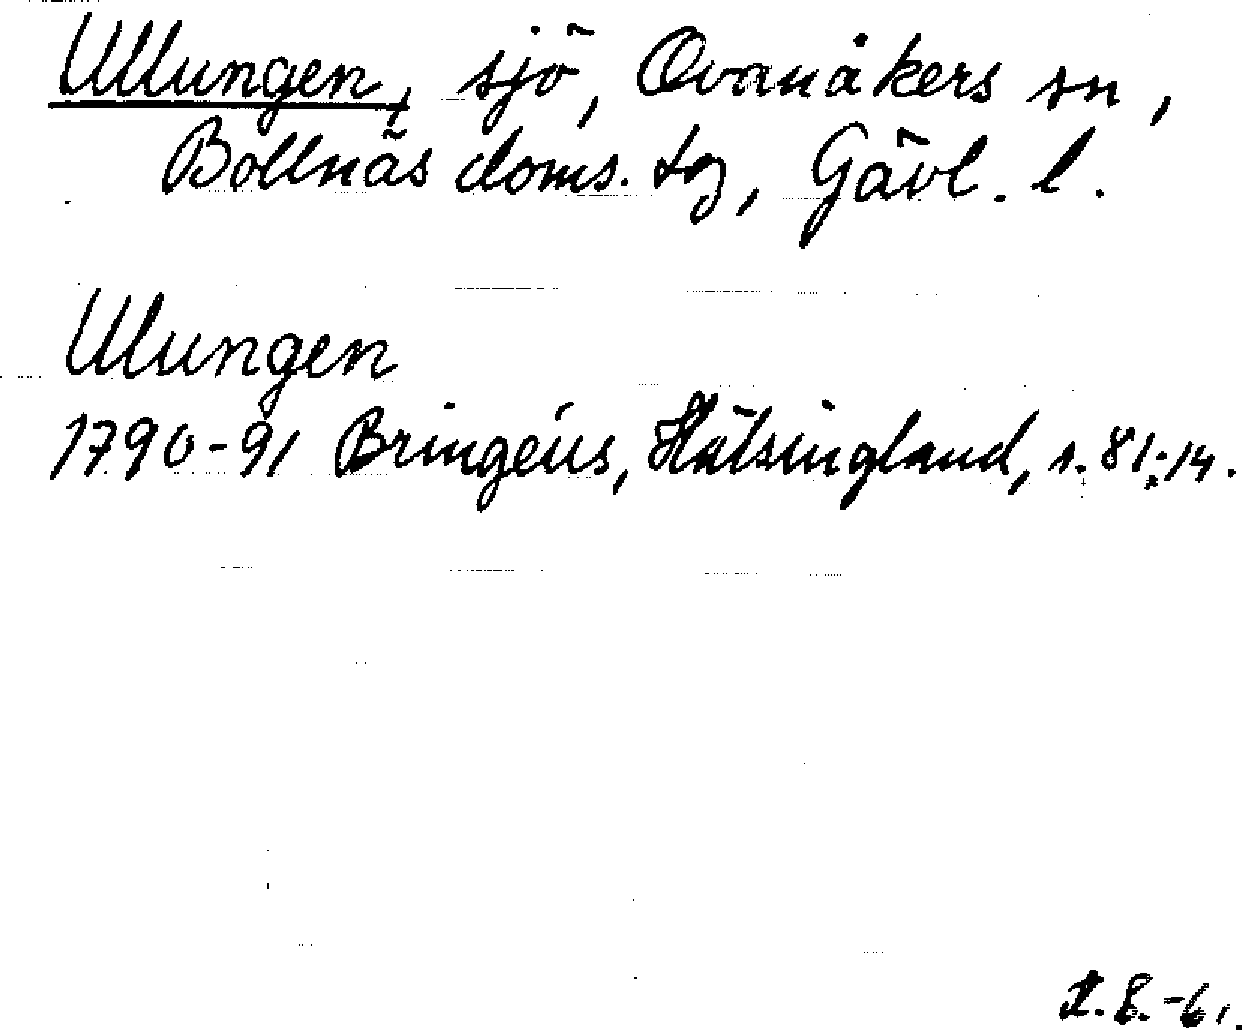 Ullungen, sjö, Ovanåkers sn,
Bollnäs doms. tg, Gävl. l.
Ulungen
1790-91 Bringéus, Hälsingland, s. 81:14.
B.-61.